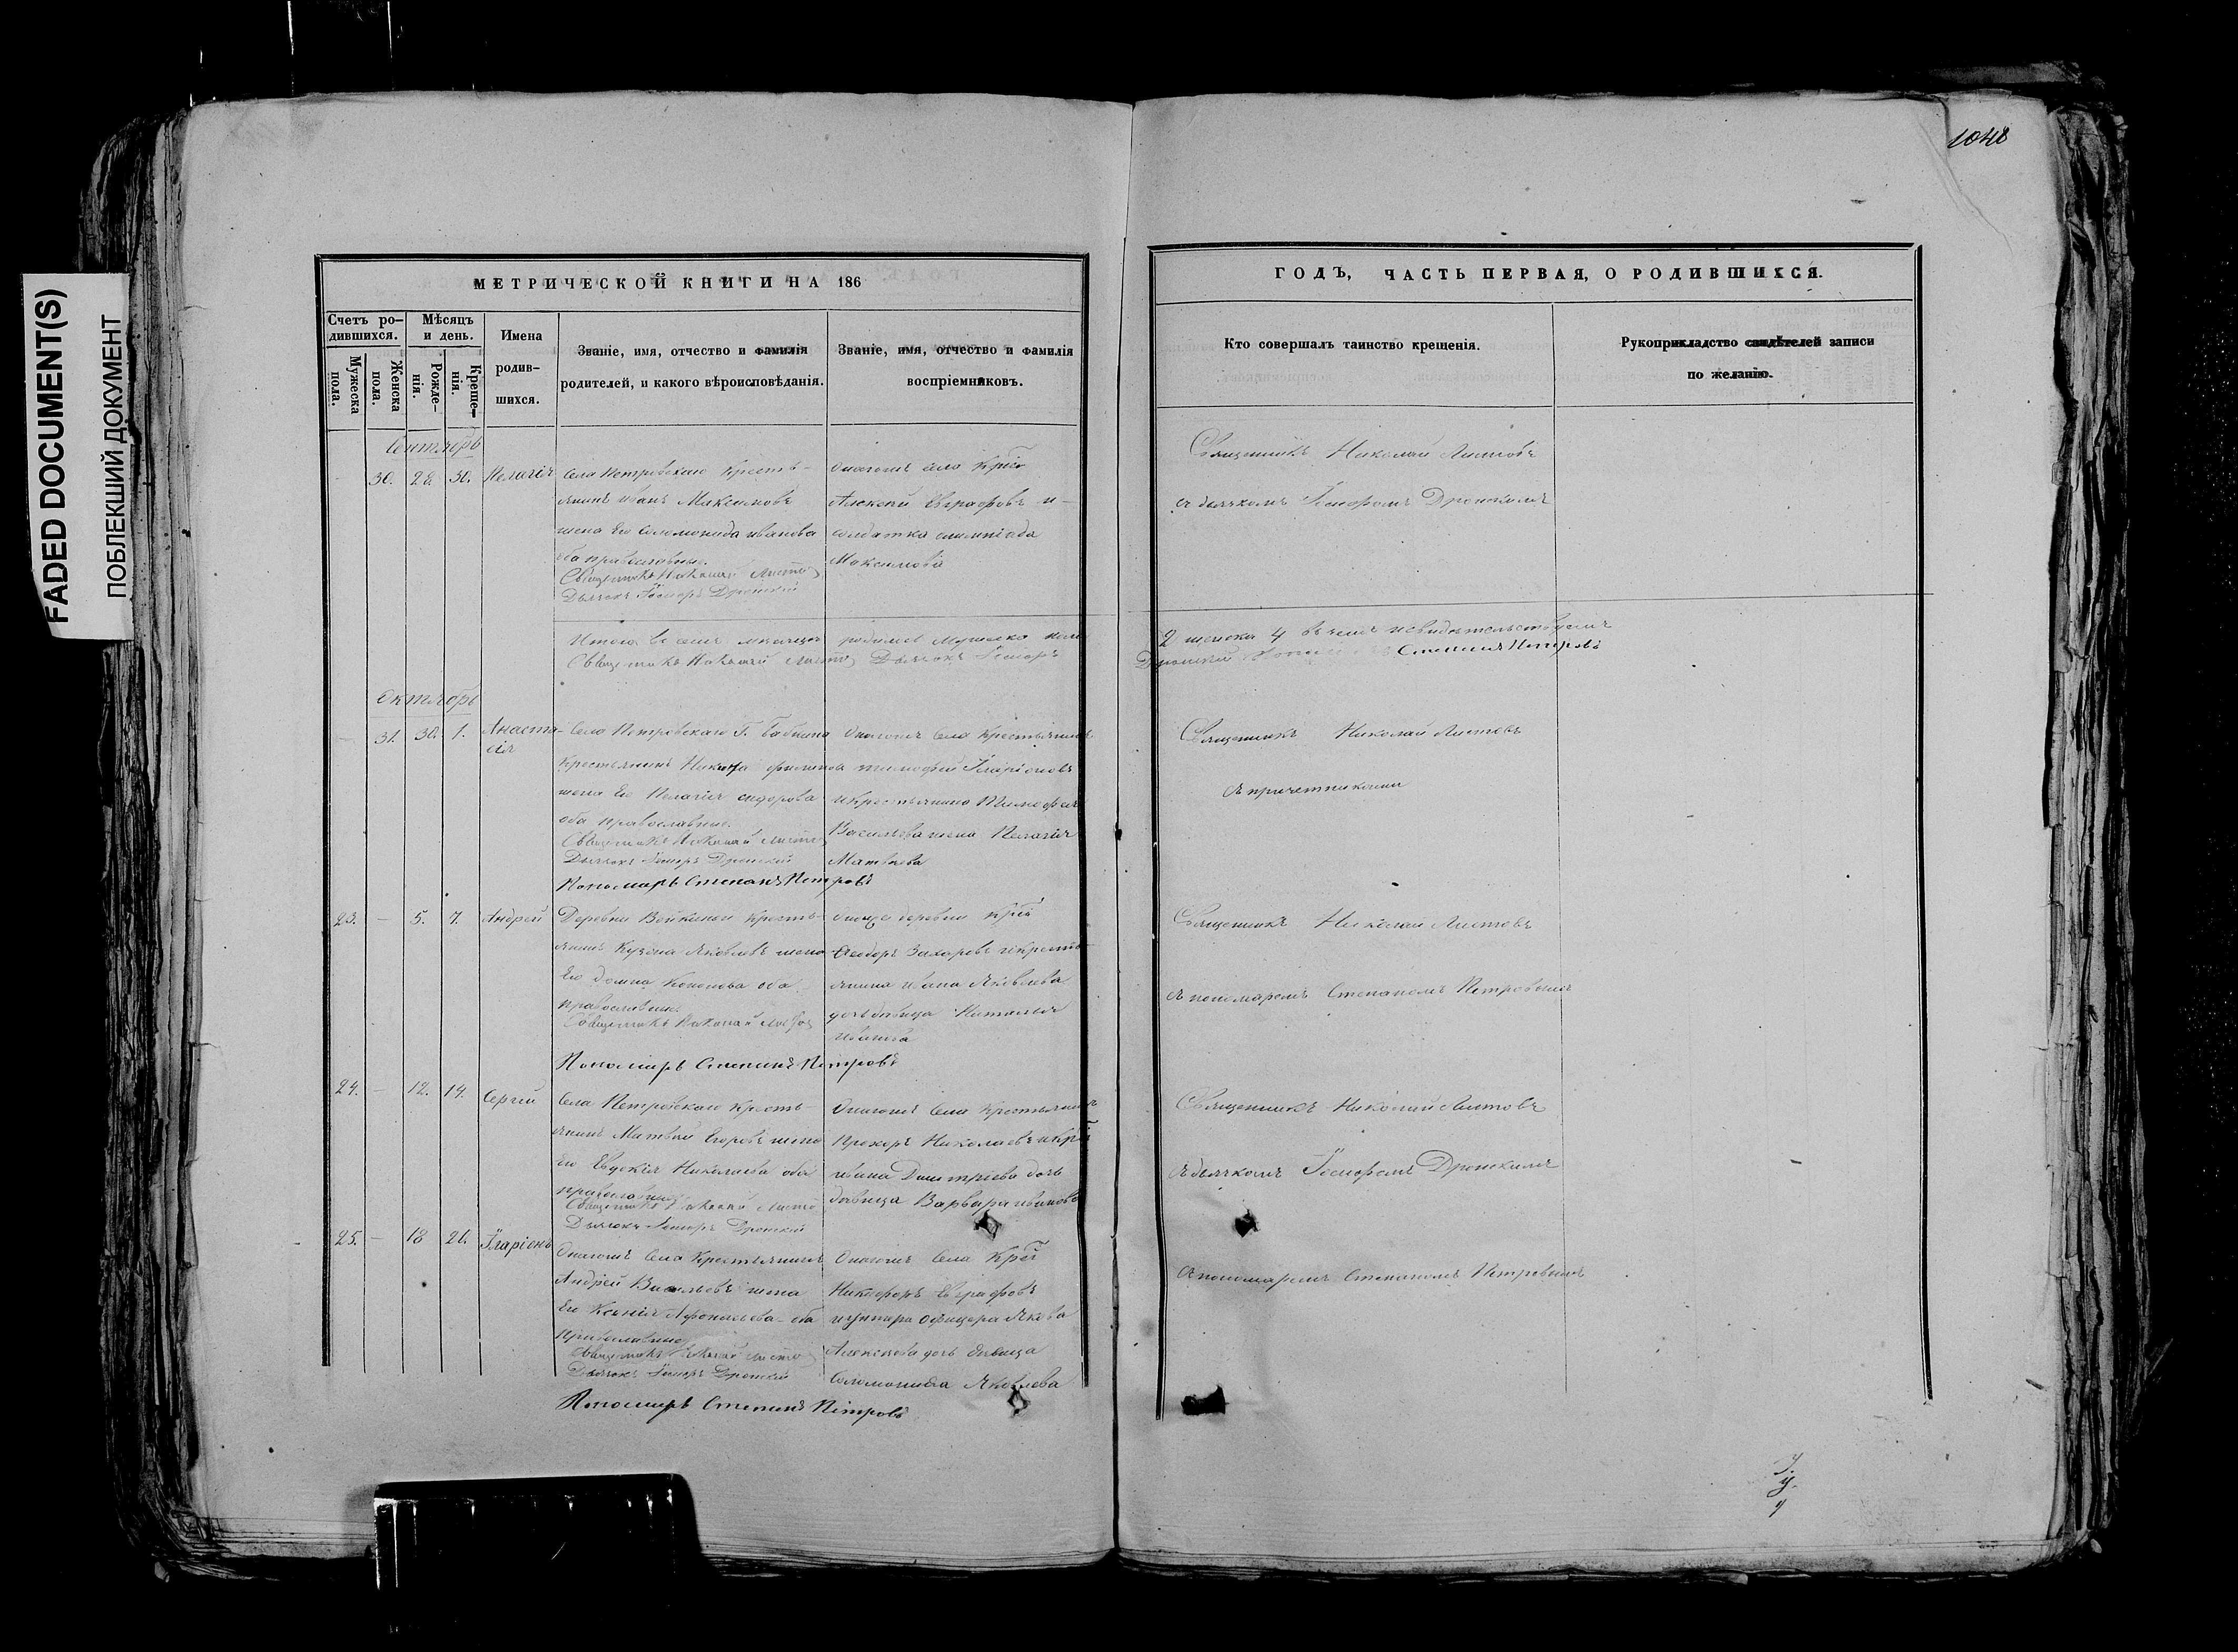 1048
FADED DOCUMENT(S)
ПОБЛЕКШИЙ ДОКУМЕНТ
МЕТРИЧЕСКОЙ КНИГИ НА 186
Счетъ ро-
дившихся.
Мужеска
пола.
Женска
пола.
Мѣсяцъ
и день.
Рожде-
нія.
Креще-
нія.
Имена
родив-
шихся.
Званіе, имя, отчество и фамилія
родителей, и какого вѣроисповѣданія.
Званіе, имя, отчество и фамилія
воспріемниковъ.
Сентябрь
30. 28. 30. Пелагія
Села Петровскаго Кресть-
янинъ Иванъ Максимовъ
жена Его Соломонида Иванова
оба православные.
Священникъ Николай Листовъ
Дьячокъ Іосифъ Дронскій
Алексей Евграфовъ и
солдатка
Максимова
Итого въ семъ месяце родилось Мужеска пола
Священникъ Николай Листовъ Дьячокъ Іосифъ
Октябрь
31. 30. 1. Анаста-
сія
Села Петровскаго Г. Бабкина
Крестьянинъ Никита
жена Его Пелагія Сидорова
оба православные.
Священникъ Николай Листовъ
Дьячокъ Іосифъ Дронскій
Пономарь Степанъ Петровъ
Села Крестьянинъ
Тимофей Иларіоновъ
и крестьянина Тимофея
Васильева жена Пелагія
Матвеева
23. — 5. 7. Андрей
Деревни Кресть-
янинъ Кузьма Яковлевъ жена
Его Домна Кононова оба
православные.
Священникъ Николай Листовъ
Пономарь Степанъ Петровъ
деревни
Феодоръ Захаровъ и кресть-
янина Ивана Яковлева
дочь девица Наталья
Иванова
24. — 12. 14. Сергей
Села Петровскаго Кресть-
янинъ Матвей Егоровъ жена
Его Евдокія Николаева оба
православные
Священникъ Николай Листовъ
Дьячокъ Іосифъ Дронскій
Села Крестьянинъ
Прохоръ Николаевъ и
Ивана Дмитріева дочь
девица Варвара Иванова
25. — 18 21. Іларіонъ
Села Крестьянинъ
Андрей Васильевъ жена
Его Ксенія Афонасьева оба
Православные
Священникъ Николай Листовъ
Дьячокъ Іосифъ Дронскій
Пономарь Степанъ Петровъ
Села
Никифоръ Евграфовъ
и унтера офицера Якова
Алексеева дочь девица
Соломонида Яковлева
ГОДЪ, ЧАСТЬ ПЕРВАЯ, О РОДИВШИХСЯ.
Кто совершалъ таинство крещенія.
Рукоприкладство свидѣтелей записи
по желанію.
Священникъ Николай Листовъ
съ дьячкомъ Іосифомъ Дронскимъ
2 женска 4 въ чемъ и свидетельствуемъ
Дронскій Степанъ Петровъ
Священникъ Николай Листовъ
съ причетниками
Священникъ Николай Листовъ
съ пономаремъ Степаномъ Петровымъ
Священникъ Николай Листовъ
съ дьячкомъ Іосифомъ Дронскимъ
съ пономаремъ Степаномъ Петровымъ